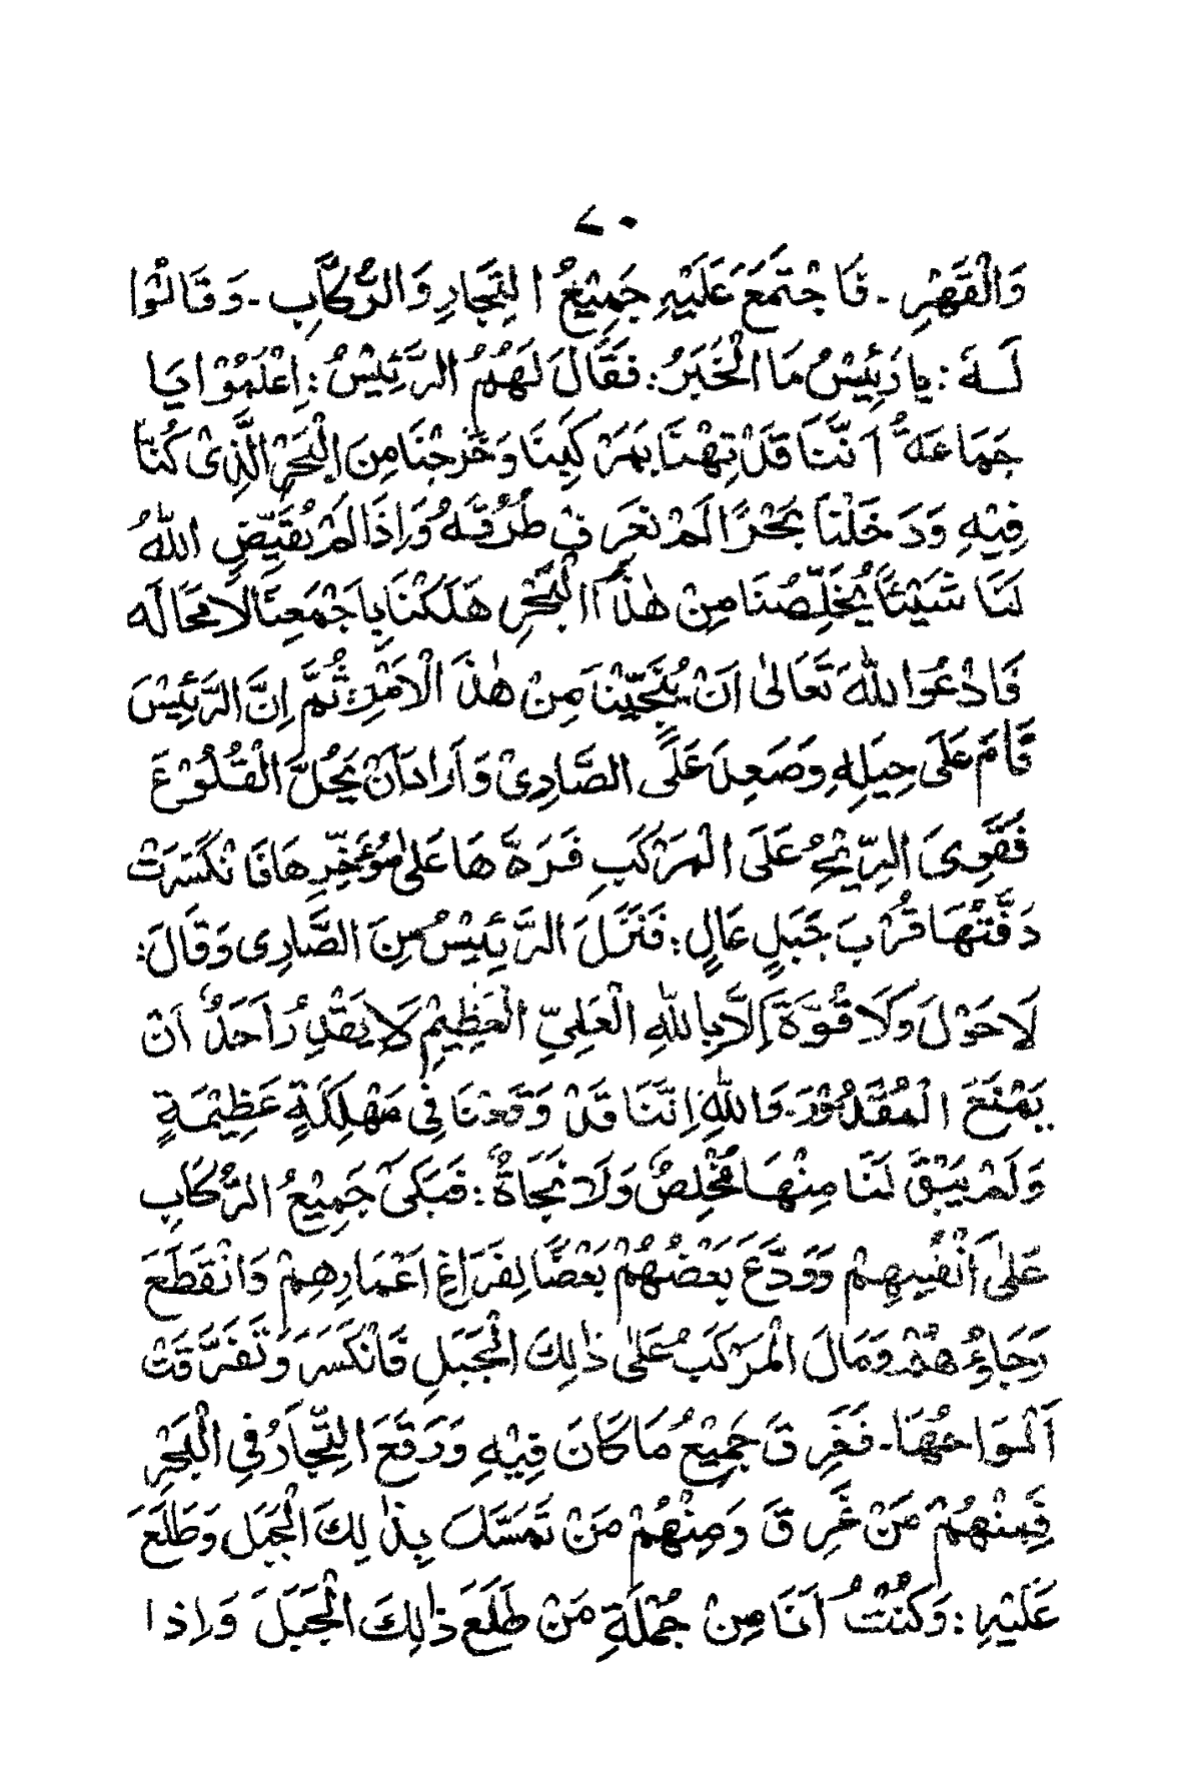 ٧٠
وَالْقَهْرِ - فَاجْتَمَعَ عَلَيْهِ جَمِيْعُ التِّجَارِ وَالرُّكَّابِ - وَقَالُوْا
لَهُ : يَا رَئِيْسُ مَا الْخَبَرُ : فَقَالَ لَهُمُ الرَّئِيْسُ : اِعْلَمُوْا يَا
جَمَاعَةُ اَنَّنَا قَدْ تِهْنَا بِمَرْكَبِنَا وَخَرَجْنَا مِنَ الْبَحْرِ الَّذِىْ كُنَّا
فِيْهِ وَدَخَلْنَا بَحْرًا لَمْ نَعْرِفْ طُرُقَهُ وَاِذَا لَمْ يُقَيِّضِ اللّٰهُ
لَنَا شَيْئًا يُخَلِّصُنَا مِنْ هٰذَا الْبَحْرِ هَلَكْنَا بِاَجْمَعِنَا لَا مَحَالَه
فَادْعُوا اللّٰهَ تَعَالٰى اَنْ يُنَجِّيْنَا مِنْ هٰذَ الْاَمْرِ : ثُمَّ اِنَّ الرَّئِيْسَ
قَامَ عَلَى حِيَلِهِ وَصَعِدَ عَلَى الصَّارِىْ وَاَرَادَ اَنْ يَحُلَّ الْقُلُوْعَ
فَقَوِىَ الرِّيْحُ عَلَى الْمَرْكَبِ فَرَدَّهَا عَلٰى مُؤَخَّرِهَا فَانْكَسَرَتْ
دَفَّتُهَا قُرْبَ جَبَلٍ عَالٍ : فَنَزَلَ الرَّئِيْسُ مِنَ الصَّارِى وَقَالَ :
لَا حَوْلَ وَلَا قُوَّةَ اِلَّا بِاللّٰهِ الْعَلِىِّ الْعَظِيْمِ لَا يَقْدِرُ اَحَدٌ اَنْ
يَمْنَعَ الْمُقَدُوْرَ - وَاللّٰهِ اِنَّنَا قَدْ وَقَعْنَا فِى مَهْلِكَةٍ عَظِيْمَةٍ
وَلَمْ يَبْقَ لَنَا مِنْهَا مُخْلِصٌ وَلَا نَجَاةٌ : فَبَكَىٰ جَمِيْعُ الرُّكَابِ
عَلٰى اَنْفُسِهِمْ وَوَدَّعَ بَعْضُهُمْ بَعْضًا لِفَرَاغِ اَعْمَارِهِمْ وَانْقَطَعَ
رَجَاؤُهُمْ وَمَالَ الْمَرْكَبُ عَلٰى ذٰلِكَ الْجَبَلِ فَانْكَسَرَ وَتَفَرَّقَتْ
اَلْوَاحُهَا - فَغَرِقَ جَمِيْعُ مَا كَانَ فِيْهِ وَوَقَعَ التِّجَارُ فِى الْبَحْرِ
فَمِنْهُمْ مَنْ غَرِقَ وَمِنْهُمْ مَنْ تَمَسَّكَ بِذٰلِكَ الْجَبَلِ وَطَلَعَ
عَلَيْهِ : وَكُنْتُ اَنَا مِنْ جُمْلَةِ مَنْ طَلَعَ ذٰلِكَ الْجَبَلَ وَاِذا